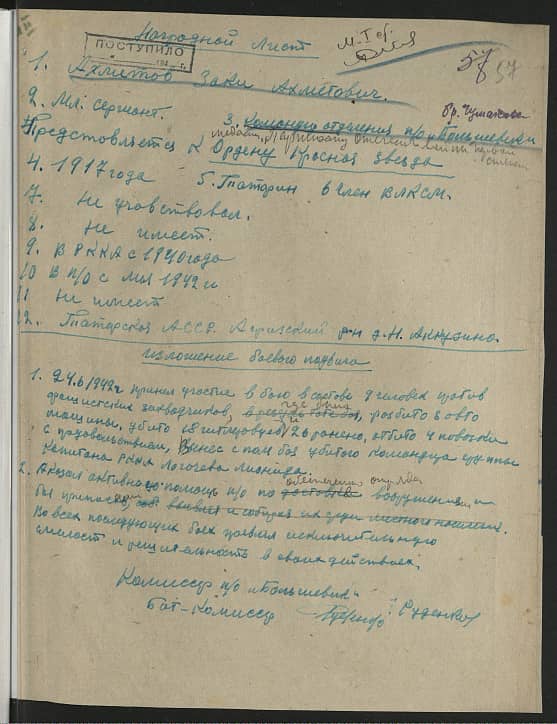 Наградной Лист
ПОСТУПИЛО
57 57
1. Ахметов Заки Ахметович.
бр. Чумакова
2. Мл. сержант. 3. Командир отделения п/о "Большевик"
медали, Партизану Отечеств. войны первой степени
Представляется к Ордену Красная Звезда
4. 1917 года 5. Татарин 6 член ВЛКСМ.
7. Не учавствовал.
8. Не имеет.
9. В РККА с 1940 года
10 В п/о с мая 1942 г.
11 Не имеет
12. Татарская АССР. Агризский р-н д. Н. Аккузино.
изложение боевого подвига
1. 24.6.1942 г. принял участие в бою в составе 9 человек против
где было
фашистских захватчиков, разбито 3 авто
машины, убито 18 гитлеровцев и 26 ранено, отбито 4 повозки
с продовольствием, вынес с поля боя убитого командира группы
капитана РККА Логачева Леонида.
обеспечению отряда
2. Оказал активную помощь п/о по доставке вооружения и
боеприпасов, собирая их среди местного населения.
Во всех последующих боях проявил исключительную
смелость и решительность в своих действиях.
Комиссар п/о "Большевик"
Бат-Комиссар Руденко